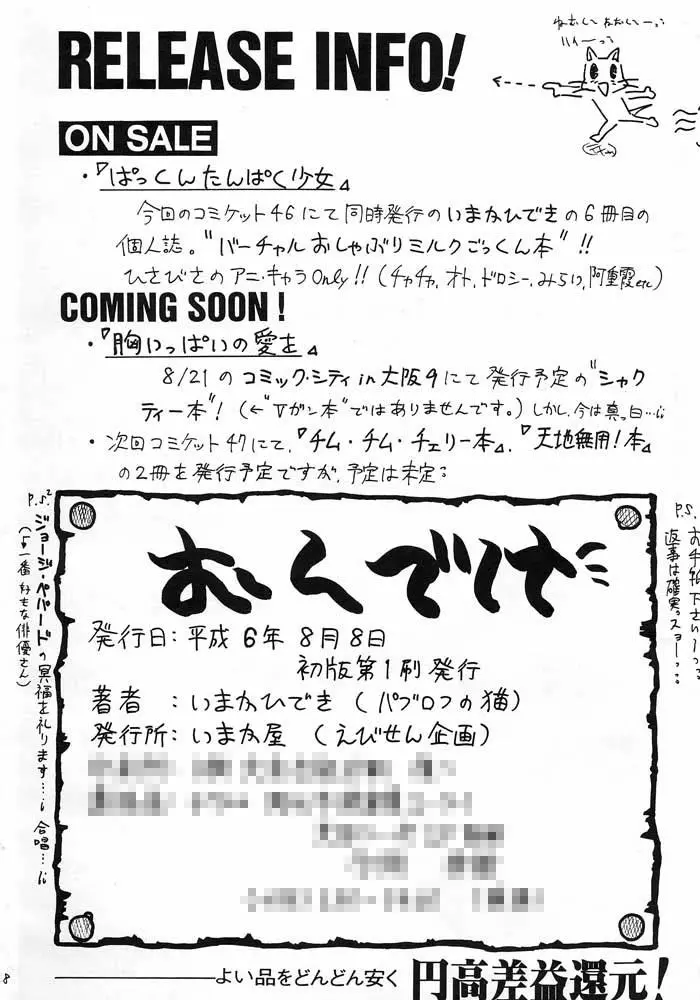 RELEASE INFO!
ON SALE
・『ぱっくんたんぱく少女』
今回のコミケット46にて同時発行のいまかひできの6冊目の
個人誌。"バーチャルおしゃぶりミルクごっくん本"!!
ひさびさのアニ・キャラOnly!! (チャチャ,オト,ドロシー,みらい,阿重霞etc)
COMING SOON!
・『胸いっぱいの愛を』
8/21のコミック・シティin大阪9にて発行予定の"シャク
ティー本"! (←"Vガン本"ではありませんです。)しかし、今は真っ白…
・次回コミケット47にて、『チム・チム・チェリー本』,『天地無用!本』
の2冊を発行予定ですが、予定は未定
P.S.2 ジョージ・ペパードの冥福を祈ります… 合唱…
(一番好きな俳優さん)
P.S.
お手紙下さいーっ
返事は確実っスョーっ
おくづけ
発行日:平成6年8月8日
初版第1刷発行
著者 :いまかひでき (パブロフの猫)
発行所:いまか屋 (えびせん企画)
よい品をどんどん安く 円高差益還元!
8